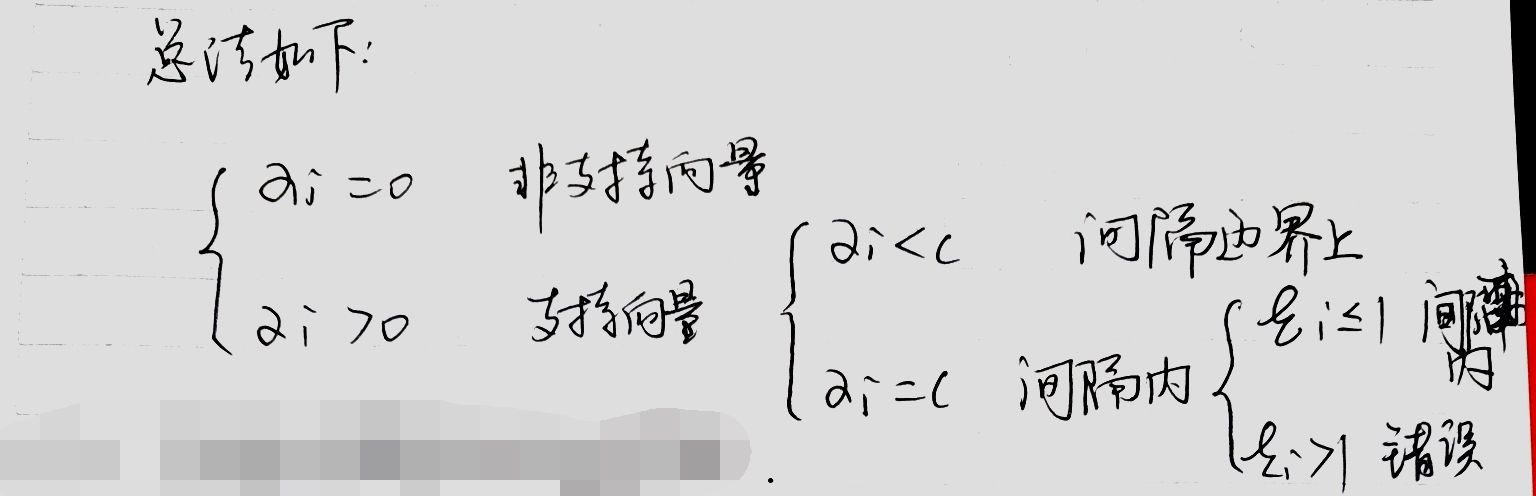 总结如下:
αi=0 非支持向量
αi>0 支持向量
αi<c 间隔边界上
αi=c 间隔内
ξi≤1 间隔
内
ξi>1 错误